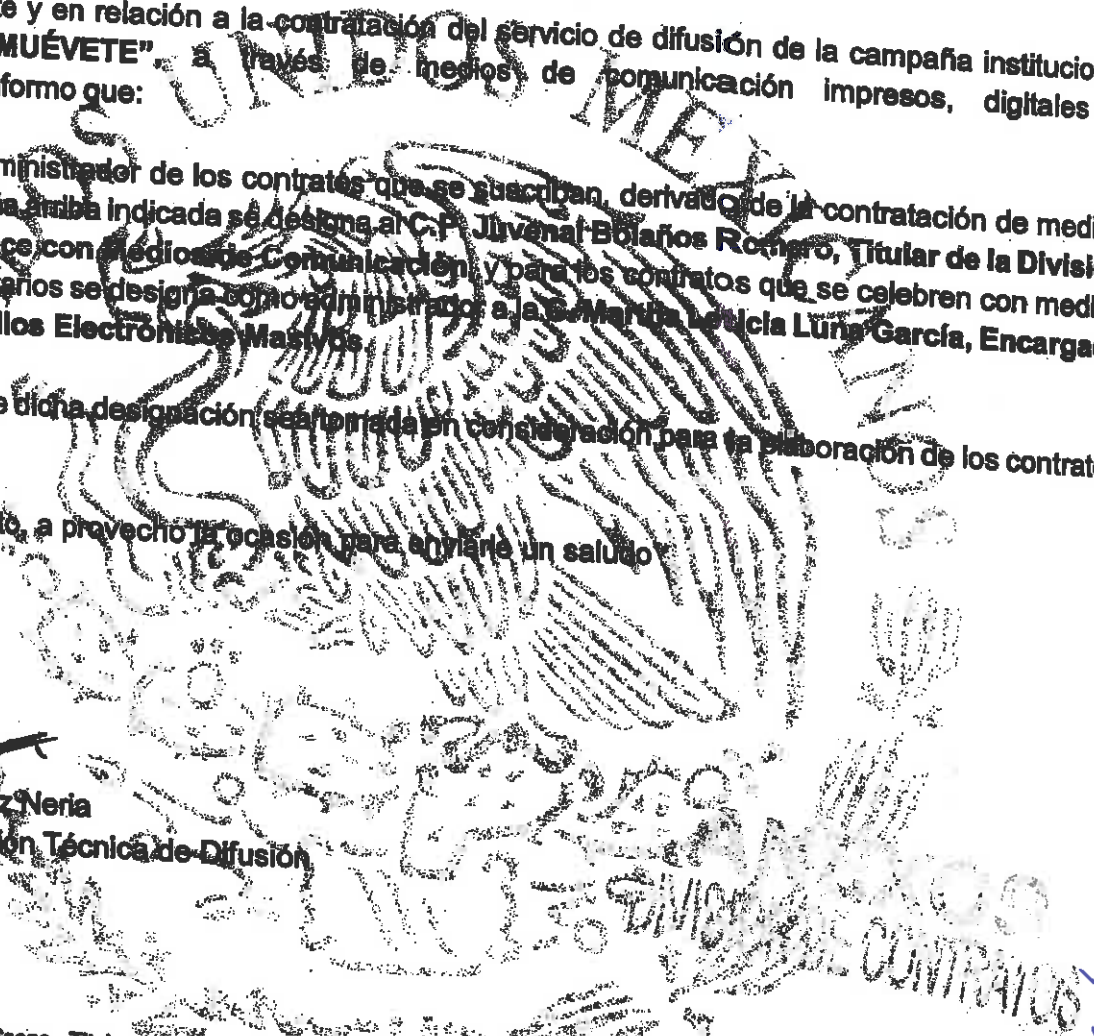 te y en relación a la contratación del servicio de difusión de la campaña institucio
MUÉVETE", a través de medios de comunicación impresos, digitales
formo que:
ministrador de los contratos que se suscriban, derivado de la contratación de medi
ña arriba indicada se designa al C.P. Juvenal Bolaños Romero, Titular de la Divisi
ce con Medios de Comunicación, y para los contratos que se celebren con medi
arios se designa como administrador a la C. Martha Leticia Luna García, Encarga
llos Electrónicos Masivos
e dicha designación sea tomada en consideración para la elaboración de los contrat
to, a provecho la ocasión para enviarle un saludo
z Neria
ión Técnica de Difusión
UNIDOS MEXICANOS
DIVISIÓN DE CONTRATOS